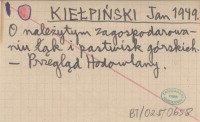 KIEŁPIŃSKI Jan 1949.
O należytym zagospodarowa-
niu łąk i pastwisk górskich.
– Przegląd Hodowlany.
BT/025/0658